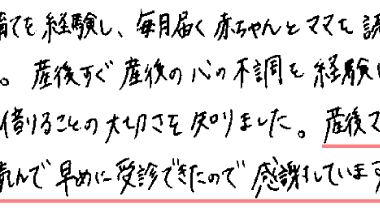 育てを経験し、毎月届く赤ちゃんとママを
。産後すぐ産後の心の不調を経験
借りることの大切さを知りました。産後
読んで早めに受診できたので感謝しています